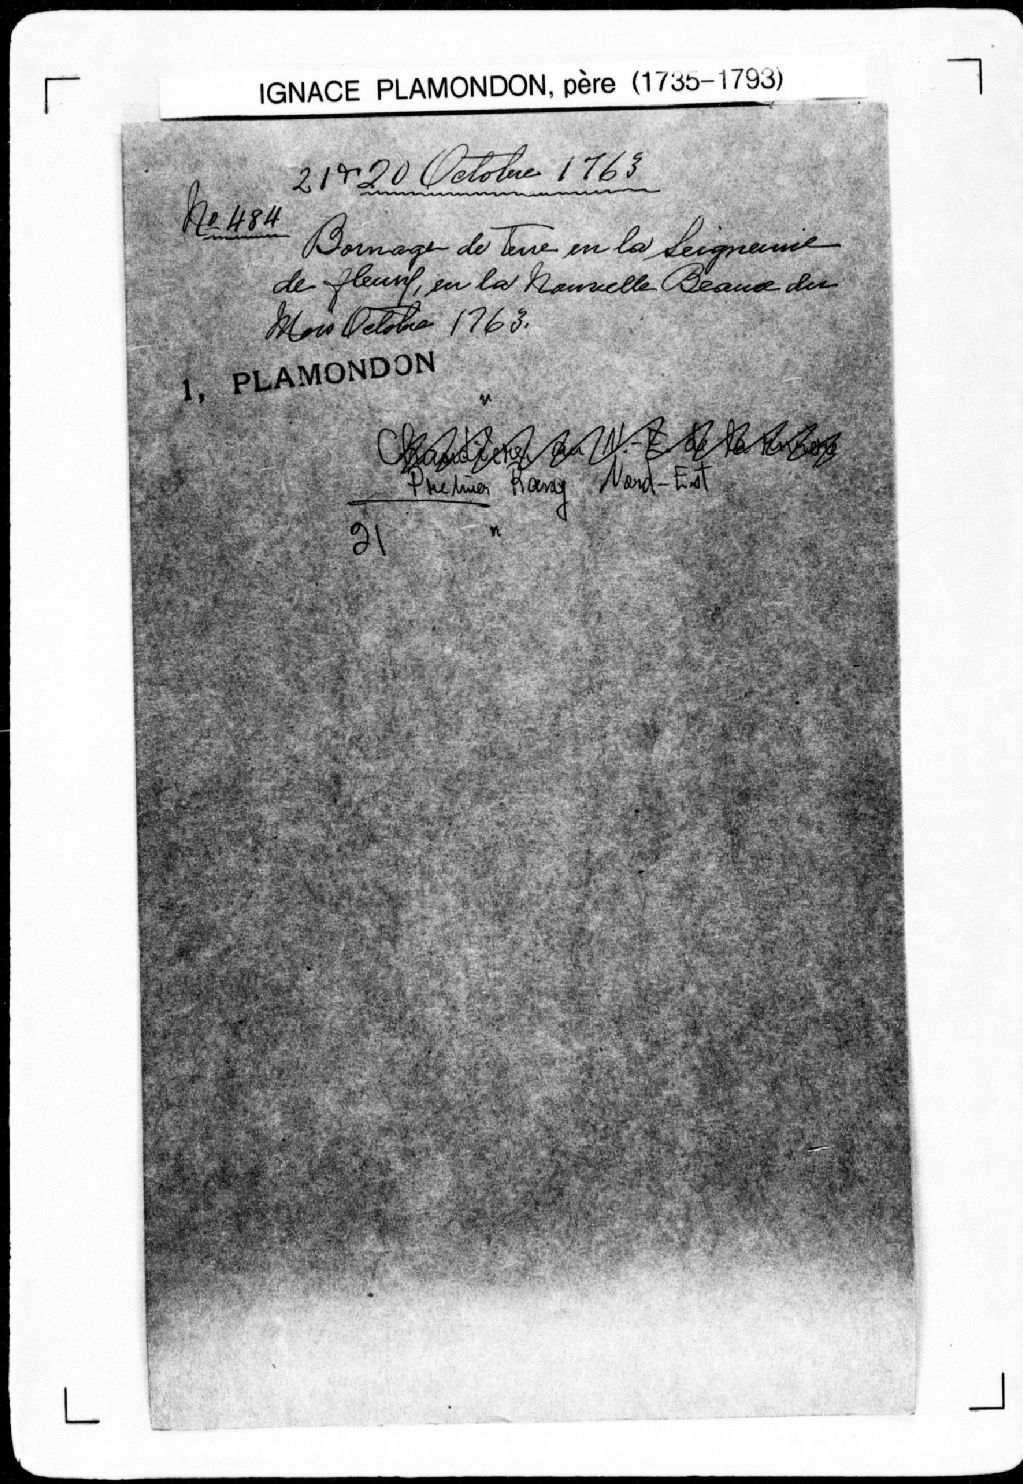 IGNACE PLAMONDON, père (1735-1793)
21 & 20 Octobre 1763
No 484
Bornage de Terre en la Seigneurie
de fleury, en la Nouvelle Beauce du
Mois Octobre 1763.
1, PLAMONDON
"
Chaudière au N.-E. de la
Premier Rang Nord-Est
21 "